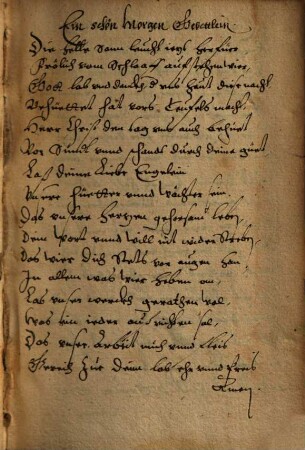 Ein schön Morgen Gebettlein
Die helle Sonn leücht ietz herfür
Frölich vom Schlaaf auf stehen wir
Gott lob und danckh d uns heüt dise nacht
Behüettet hat vors Teufels macht
Herr Christ den tag uns auch behüet
Vor Sündt unnd schandt durch deine güet
Laß deine Liebe Engelein
Unsere Hüetter unnd wächter sein
Das unsere hertzen gehorsam leben
Deim Wort unnd will nit wider Streben
Das wir dich Stets vor augen han
In allem was wir heben an
Laß unser werckh gerathen wol
Was ein ieder aus richten sol
Das unser arbeit müeh unnd fleis
Gereich zue deim lob ehr unnd Preis
Amen